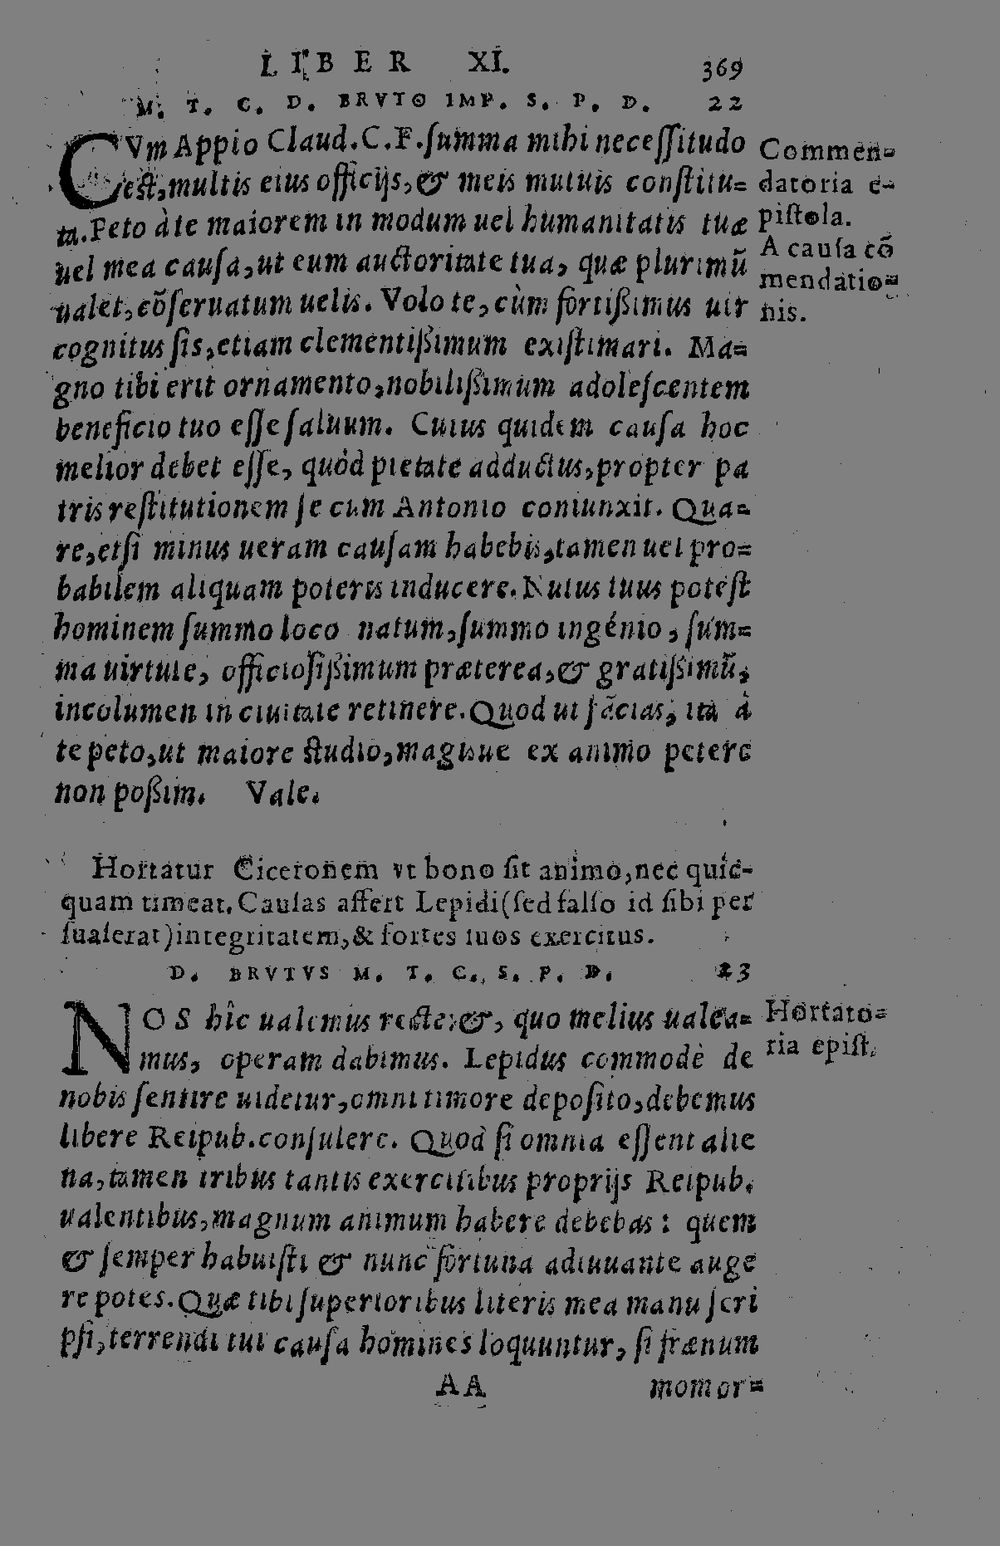 LIBER XI. 369
M. T. C. D. BRVTO IMP. S. P. D. 22
CVm Appio Claud. C. F. ſumma mihi neceſſitudo
eſt, multis eius officijs, & meis mutuis conſtitu=
ta. Peto à te maiorem in modum uel humanitatis tuæ
uel mea cauſa, ut eum auctoritate tua, quæ plurimũ
ualet, cõſeruatum uelis. Volo te, cùm fortißimus uir
cognitus ſis, etiam clementißimum exiſtimari. Ma=
gno tibi erit ornamento, nobilißimum adoleſcentem
beneficio tuo eſſe ſaluum. Cuius quidem cauſa hoc
melior debet eſſe, quòd pietate adductus, propter pa
tris reſtitutionem ſe cum Antonio coniunxit. Qua=
re, etſi minus ueram cauſam habebis, tamen uel pro=
babilem aliquam poteris inducere. Nutus tuus poteſt
hominem ſummo loco natum, ſummo ingenio, ſum=
ma uirtute, officioſißimum præterea, & gratißimũ,
incolumen in ciuitate retinere. Quod ut facias, ita à
te peto, ut maiore ſtudio, magisue ex animo petere
non poßim. Vale.
Commen=
datoria e-
piſtola.
A cauſa cõ
mendatio=
nis.
Hortatur Ciceronem vt bono ſit animo, nec quic-
quam timeat. Cauſas affert Lepidi (ſed falſo id ſibi per
ſuaſerat) integritatem, & fortes ſuos exercitus.
D. BRVTVS M. T. C. S. P. D. 23
NOS hîc ualemus recte: &, quo melius ualea=
mus, operam dabimus. Lepidus commodè de
nobis ſentire uidetur, omni timore depoſito, debemus
libere Reipub. conſulere. Quod ſi omnia eſſent alie
na, tamen tribus tantis exercitibus proprijs Reipub.
ualentibus, magnum animum habere debebas: quem
& ſemper habuiſti & nunc fortuna adiuuante auge
re potes. Quæ tibi ſuperioribus literis mea manu ſcri
pſi, terrendi tui cauſa homines loquuntur, ſi frænum
Hortato=
ria epiſt.
AA momor=